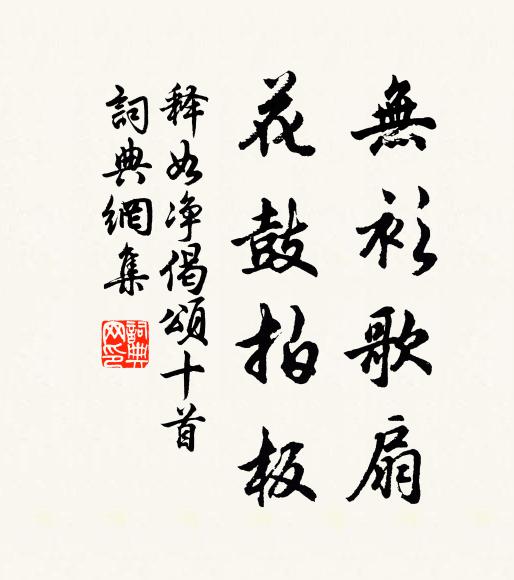 無衫歌扇
花鼓拍板
释如净偈頌十首
詞典網集
詞典网印